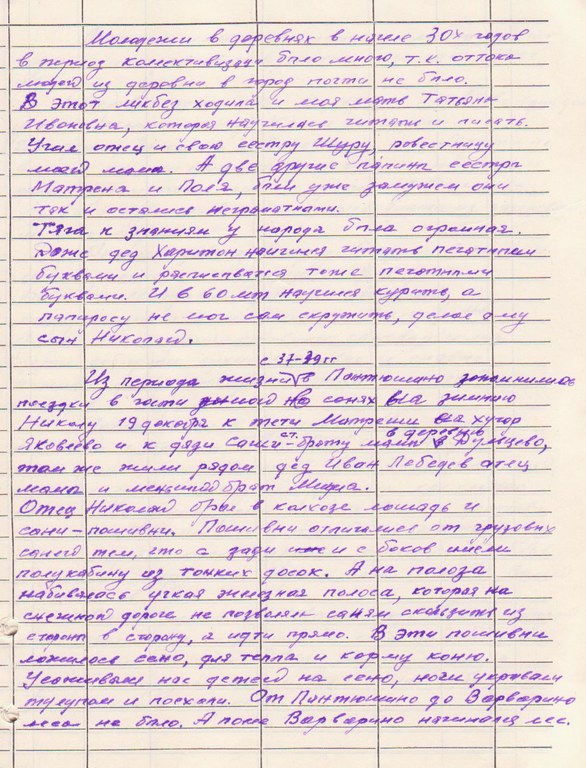 Молодежи в деревнях в начале 30х годов
в период колективизации было много, т.к. оттока
людей из деревни в город почти не было.
В этот ликбез ходила и моя мать Татьяна
Ивановна, которая научилась читать и писать.
Учил отец и свою сестру Шуру, ровестницу
моей мамы. А две другие папины сестры
Матрена и Поля, были уже замужем они
так и остались неграматными.
Тяга к знаниям у народа была огромная.
Даже дед Харитон научился читать печатными
буквами и расписыватся тоже печатными
буквами. И в 60 лет научился курить, а
папиросу не мог сам скрутить, делал ему
сын Николай.
с 37-39 гг
Из периода жизни в Пантюшино запомнились
поездки в гости зимой на санях на зимнию
Николу 19 декабря к тети Матрены на хутор
Яковлево и к дяди Саши - ст. брату мамы в деревню Думцево,
там же жили рядом дед Иван Лебедев отец
мамы и меньшой брат Миша.
Отец Николай брал в колхозе лошадь и
сани-пошивни. Пошивни отличались от грузовых
саней тем, что с зади и с боков имели
полукабину из тонких досок. А на полоза
набивалось узкая железная полоса, которая на
снежной дороге не позволяла саням скользить из
стороны в сторону, а идти прямо. В эти пошивни
ложилось сено, для тепла и корму коню.
Усаживали нас детей на сено, ноги укрывали
тулупом и поехали. От Пантюшино до Варварино
леса не было. А после Варварино начинался лес.